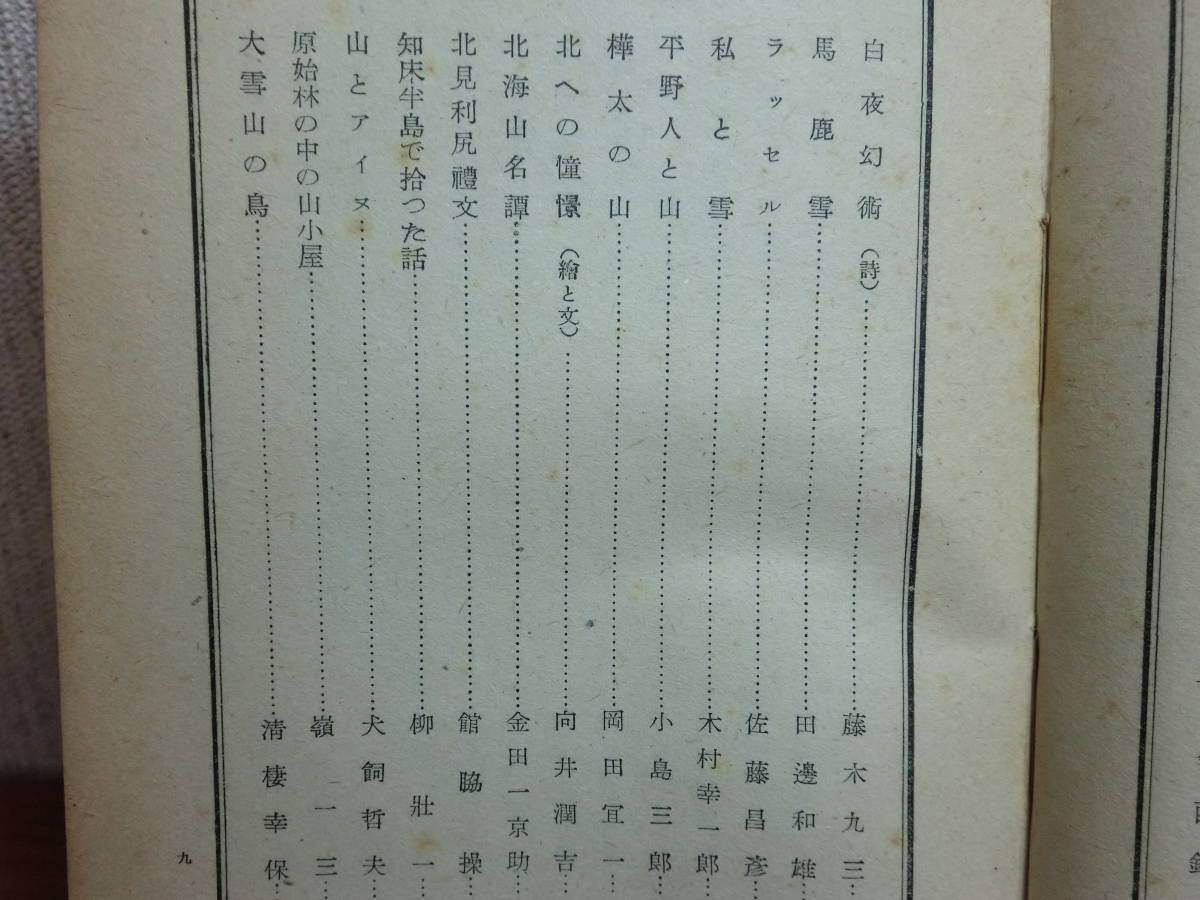 白夜幻術（詩）……藤木九三……
馬鹿雪……田邊和雄……
ラッセル……佐藤昌彥……
私と雪……木村幸一郎……
平野人と山……小島三郎……
樺太の山……岡田宜一……
北への憧憬（繪と文）……向井潤吉……
北海山名譚……金田一京助……
北見利尻禮文……館脇操……
知床半島で拾つた話……柳壯一……
山とアイヌ……犬飼哲夫……
原始林の中の山小屋……嶺一三……
大雪山の鳥……淸棲幸保……
九